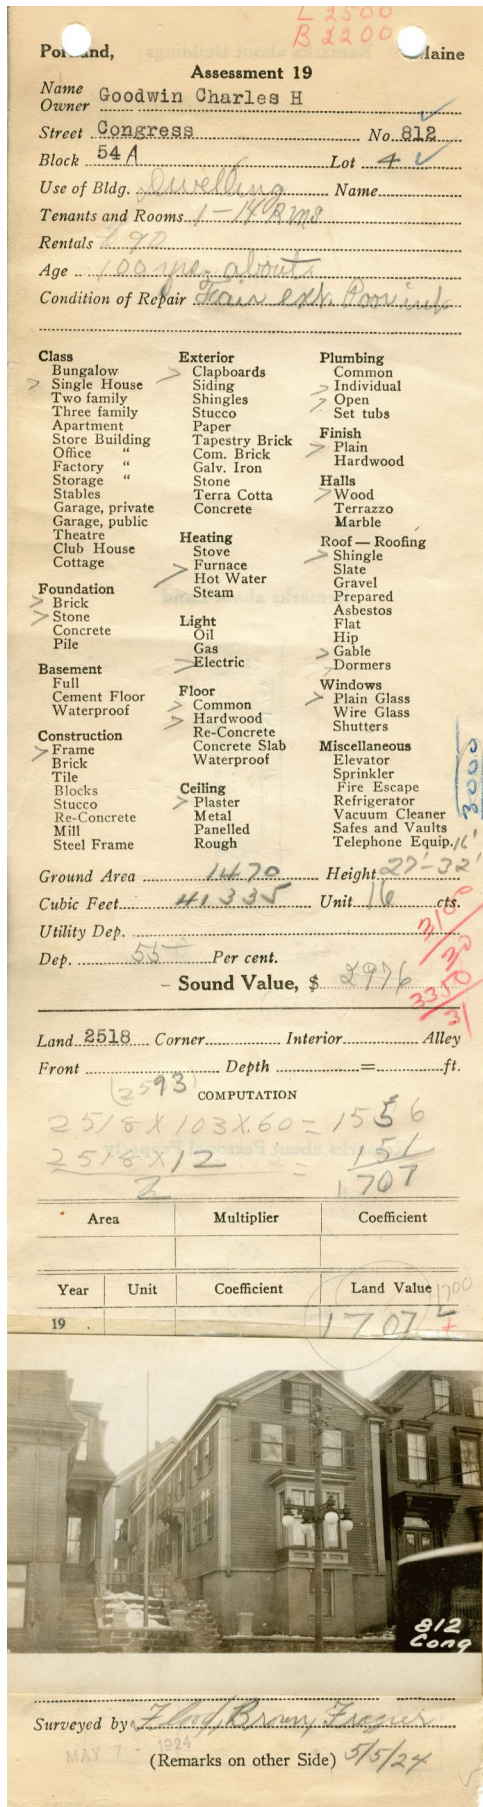 L 2500
B 2200
Portland, Maine
Assessment 19
Name
Owner Goodwin Charles H
Street Congress No. 812
Block 54 A Lot 4
Use of Bldg. Dwelling Name
Tenants and Rooms 1 - 14 Rms
Rentals $ 90
Age 100 yrs. about
Condition of Repair Fair ext. Poor int
Class
Bungalow
Single House
Two family
Three family
Apartment
Store Building
Office "
Factory "
Storage "
Stables
Garage, private
Garage, public
Theatre
Club House
Cottage
Foundation
Brick
Stone
Concrete
Pile
Basement
Full
Cement Floor
Waterproof
Construction
Frame
Brick
Tile
Blocks
Stucco
Re-Concrete
Mill
Steel Frame
Exterior
Clapboards
Siding
Shingles
Stucco
Paper
Tapestry Brick
Com. Brick
Galv. Iron
Stone
Terra Cotta
Concrete
Heating
Stove
Furnace
Hot Water
Steam
Light
Oil
Gas
Electric
Floor
Common
Hardwood
Re-Concrete
Concrete Slab
Waterproof
Ceiling
Plaster
Metal
Panelled
Rough
Plumbing
Common
Individual
Open
Set tubs
Finish
Plain
Hardwood
Halls
Wood
Terrazzo
Marble
Roof — Roofing
Shingle
Slate
Gravel
Prepared
Asbestos
Flat
Hip
Gable
Dormers
Windows
Plain Glass
Wire Glass
Shutters
Miscellaneous
Elevator
Sprinkler
Fire Escape
Refrigerator
Vacuum Cleaner
Safes and Vaults
Telephone Equip.
3000
16'
Ground Area 1470 Height 27'-32'
Cubic Feet 41335 Unit 16 cts.
Utility Dep.
Dep. 55 Per cent.
3100
30
3350
31
Sound Value, $ 2976
Land 2518 Corner Interior Alley
Front Depth = ft.
(2593)
COMPUTATION
2518 X 103 X.60 = 1556
2518 X 12 = 151
2 1707
Area Multiplier Coefficient
Year Unit Coefficient Land Value 1700
19 1707
812
Cong
Surveyed by Floyd, Brown, Frazier
MAY 7 - 1924
(Remarks on other Side) 5/5/24